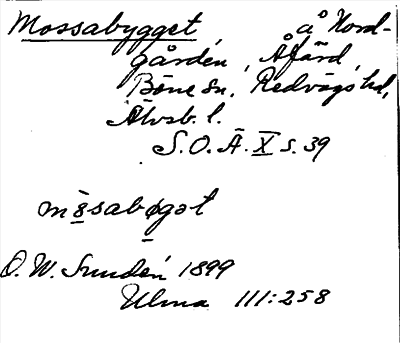 Mossabygget, å Nord-
gården, Åfärd,
Böne sn, Redvägs hd,
Älvsb. l.
S.O.Ä. X s. 39
måsabygət
O. W. Sundén 1899
Ulma III:258